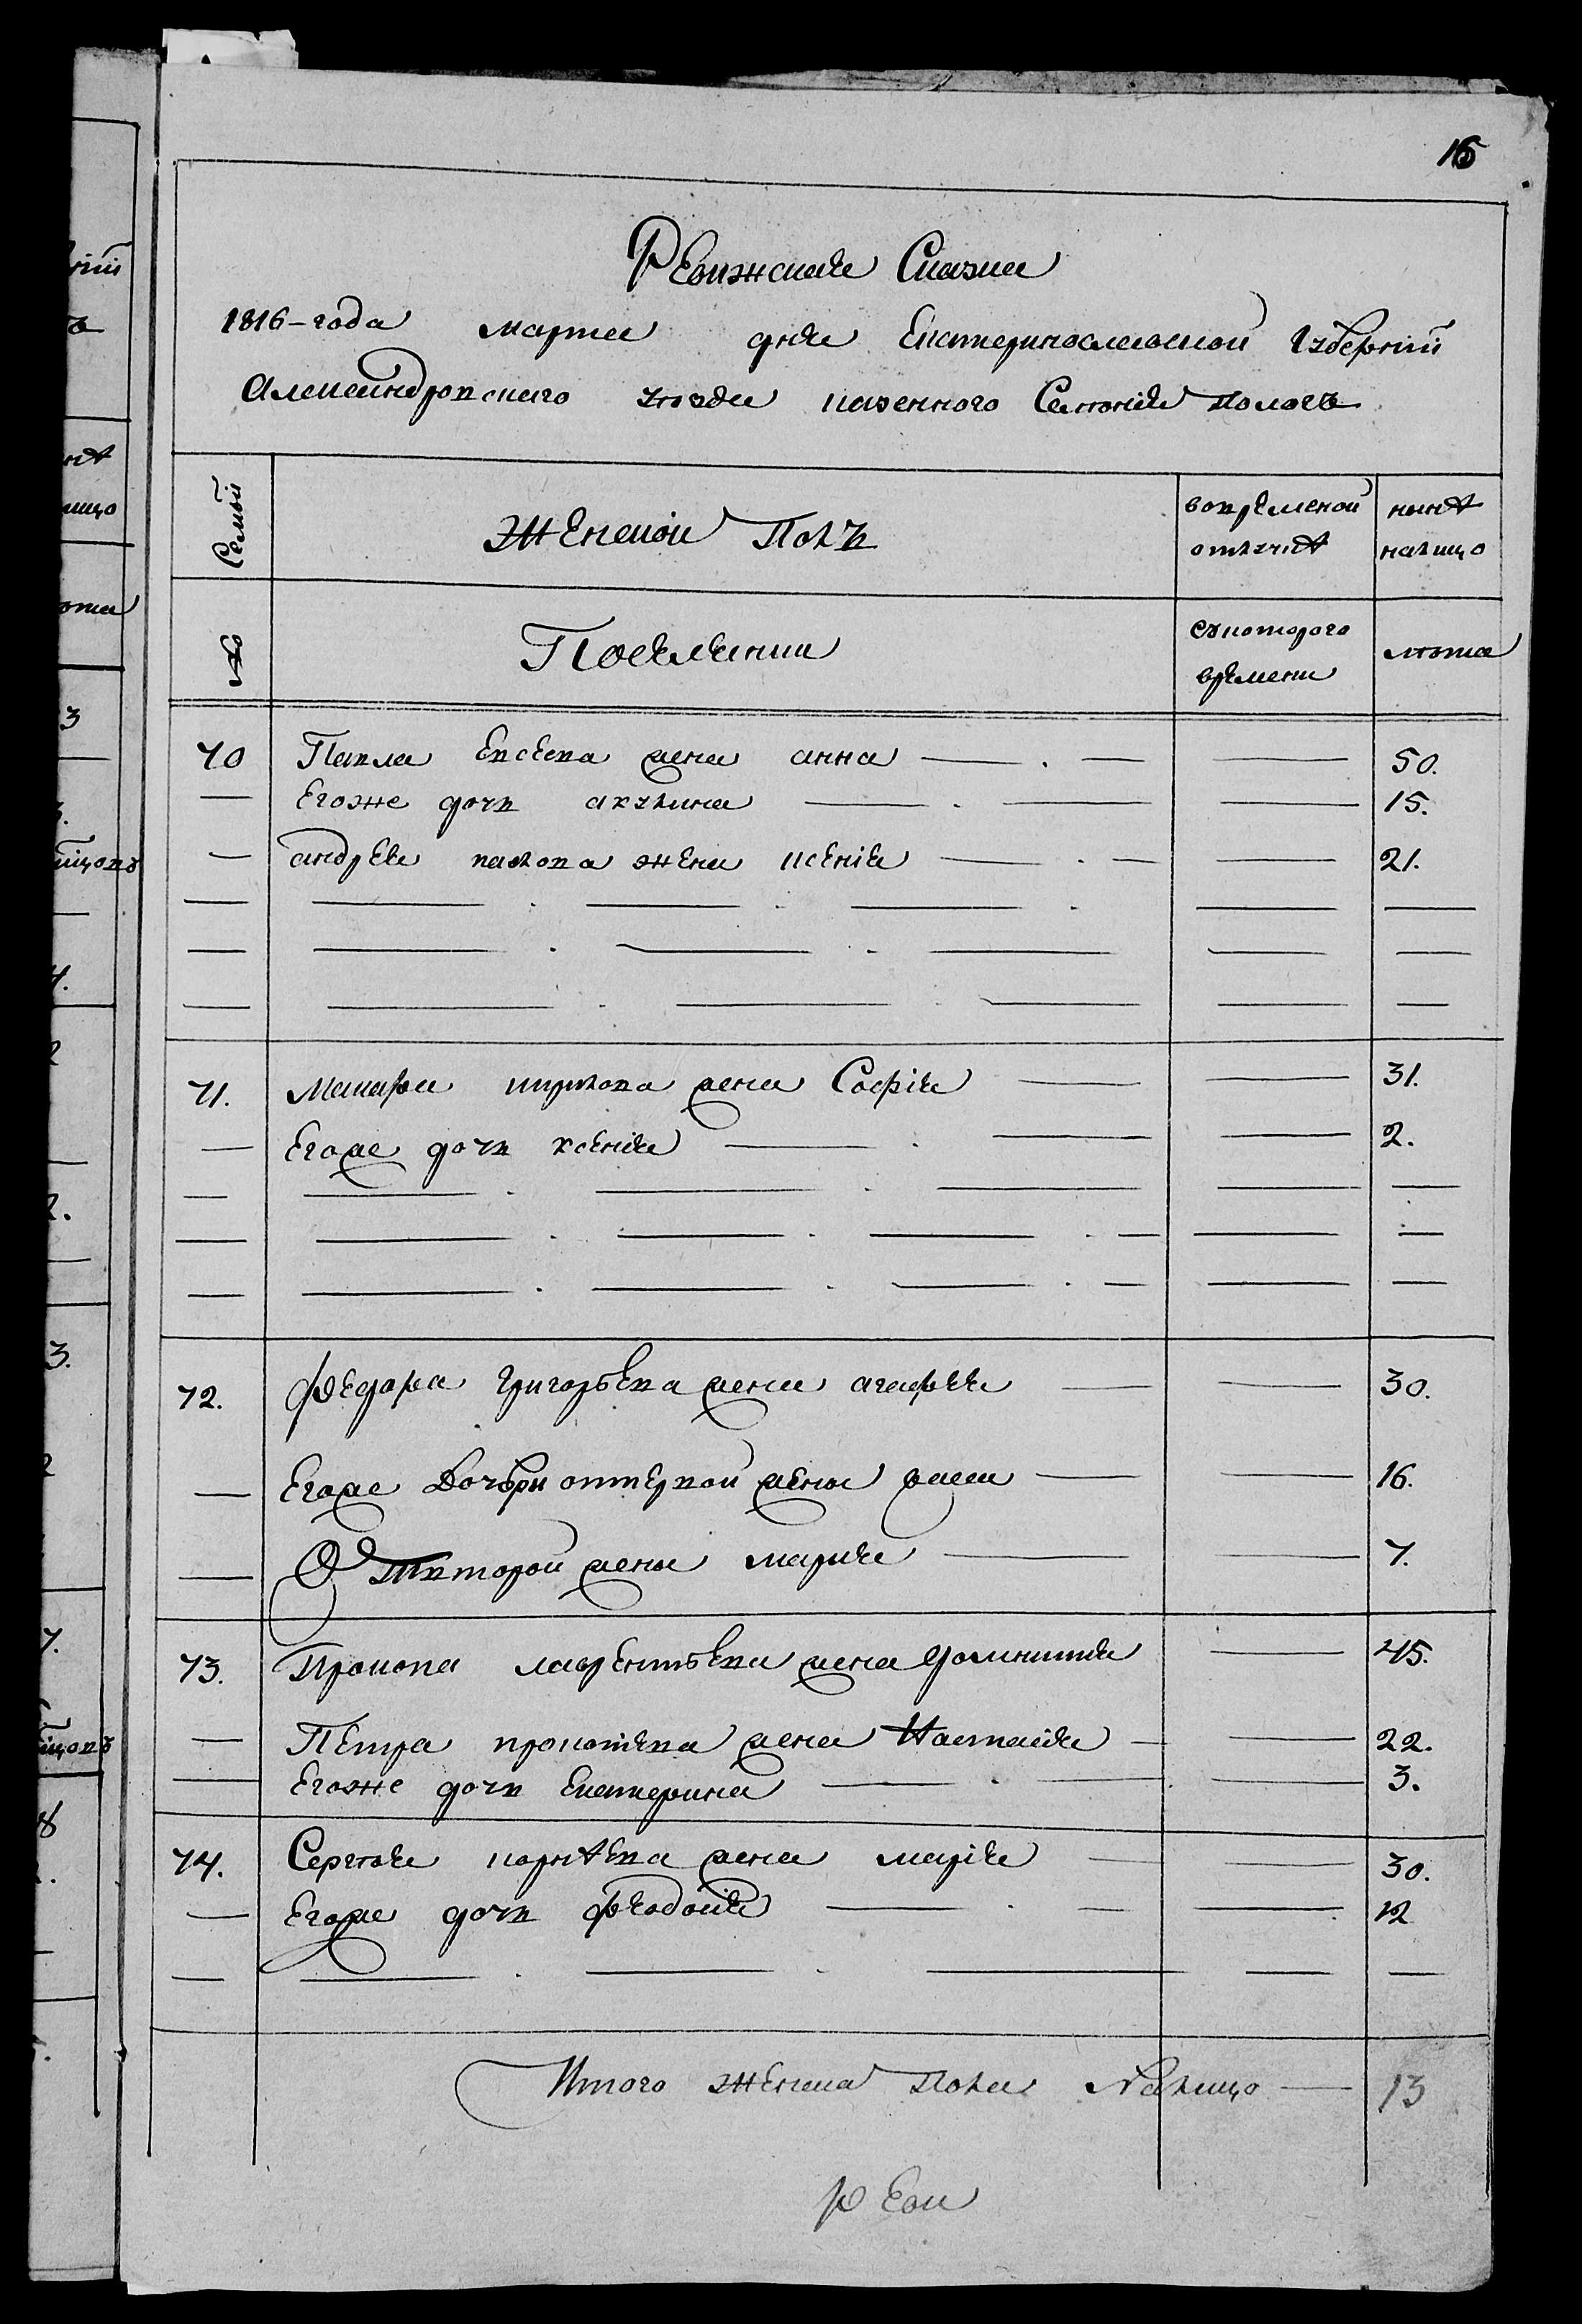 16
Ревижская Сказка
1816-года марта дня Екатеринославской Губернии
Александровского уѣзда казенного Селенія Пологъ
Семьи
Женской Полъ
вовременой
отлучкѣ
нынѣ
налицо
№
Поселянки
Скоторого
времени
лѣта
70 Павла Евсева жена анна 50.
Егоже дочь акулина 15.
андрея павлова жена ксенія 21.
71. Макара кирилова жена Софія 31.
Егоже дочь ксенія 2.
72. Федора Григорьева жена агафья 30.
Егоже Дочьри отпервой жены 16.
Отвторой жены мария 7.
73. Прокопа лаврентьева жена домникия 45.
Петра прокопьева жена Настасия 22.
Егоже дочь Екатерина 3.
74. Сергея корнѣева жена марія 30.
Егоже дочь феодосия 12
Итого женска пола Налицо 13
реви